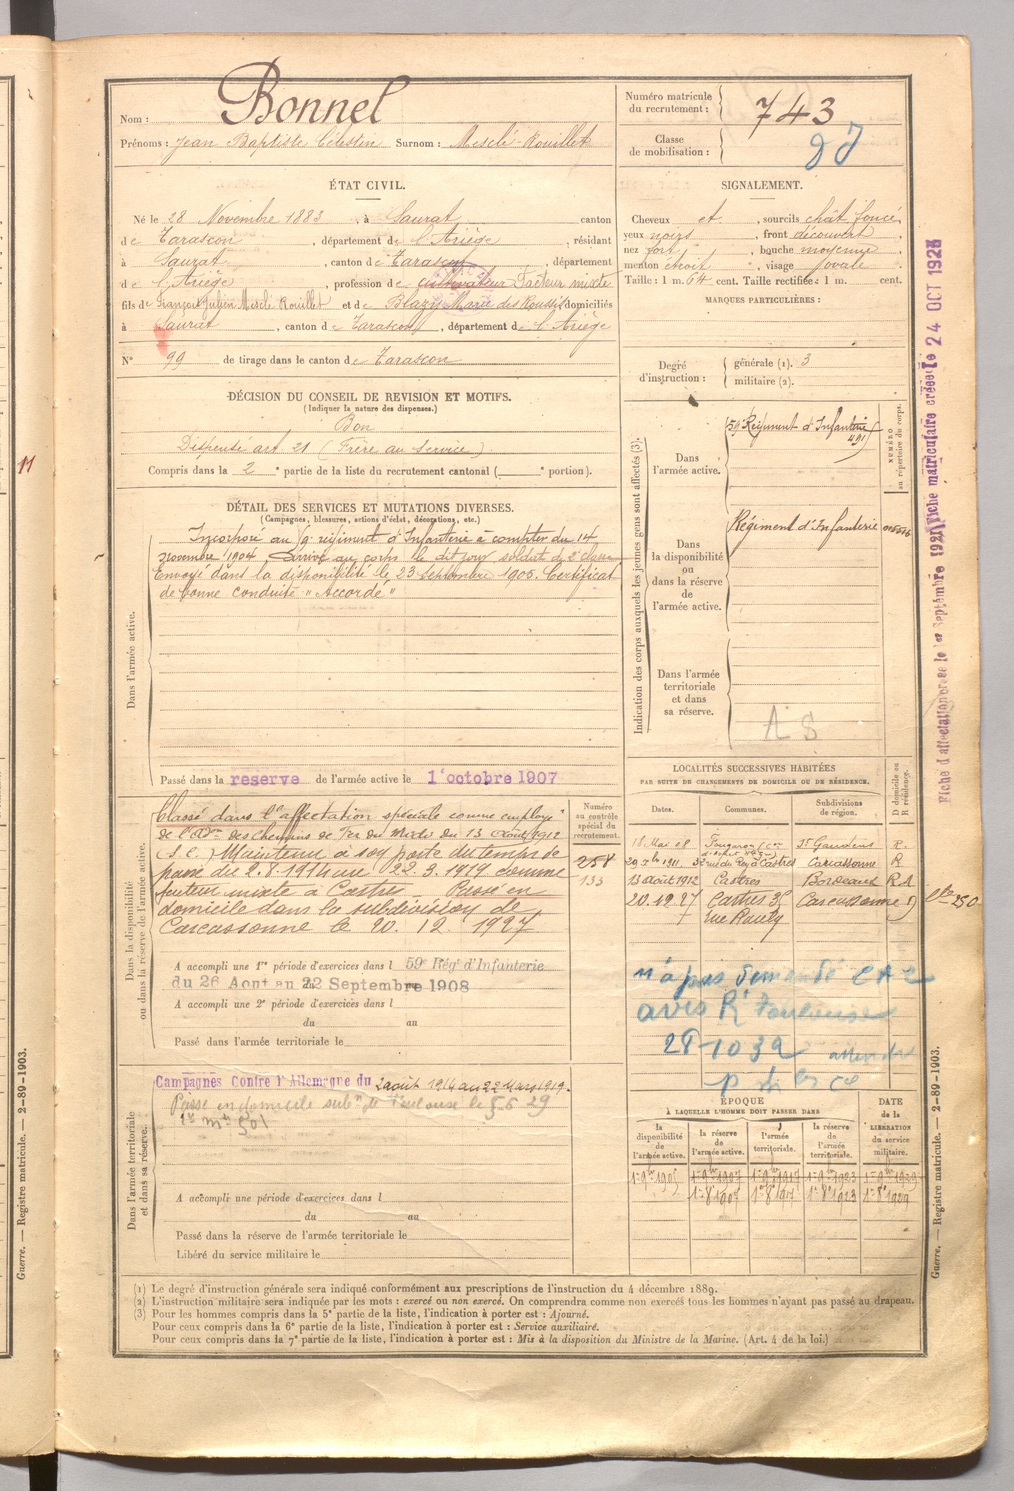 Nom : Bonnel
Prénoms : Jean Baptiste Célestin Surnom : Mesclé-Rouillet
Numéro matricule du recrutement : 743
Classe de mobilisation :
ÉTAT CIVIL.
Né le 28 Novembre 1883, à Saurat canton
de Tarascon, département de l'Ariège, résidant
à Saurat, canton de Tarascon, département
de l'Ariège, profession de cultivateur Facteur mixte
fils de François Julien Mesclé Rouillet et de Blazy Marie des Roussis domiciliés
à Saurat, canton de Tarascon, département de l'Ariège
N° 99 de tirage dans le canton de Tarascon
SIGNALEMENT.
Cheveux et, sourcils chât foncé
yeux noirs, front découvert
nez fort, bouche moyenne
menton étroit, visage ovale
Taille : 1 m. 64 cent. Taille rectifiée : 1 m. cent.
MARQUES PARTICULIÈRES :
Degré d'instruction : générale (1). 3
militaire (2).
DÉCISION DU CONSEIL DE REVISION ET MOTIFS.
(Indiquer la nature des dispenses.)
Bon
Dispensé art. 21 (Frère au Service)
Compris dans la 2e partie de la liste du recrutement cantonal ( e portion).
DÉTAIL DES SERVICES ET MUTATIONS DIVERSES.
(Campagnes, blessures, actions d'éclat, décorations, etc.)
Dans l'armée active.
Incorporé au régiment d'Infanterie à compter du 14
novembre 1904. Arrivé au corps le dit jour soldat de 2e classe
Envoyé dans la disponibilité le 23 Septembre 1905. Certificat
de bonne conduite "Accordé"
Passé dans la reserve de l'armée active le 1er octobre 1907
Indication des corps auxquels les jeunes gens sont affectés (3).
NUMÉRO au répertoire du corps.
Dans l'armée active.
59e Régiment d'Infanterie
Dans la disponibilité ou dans la réserve de l'armée active.
Régiment d'Infanterie
Dans l'armée territoriale et dans sa réserve.
A S
Dans la disponibilité ou dans la réserve de l'armée active.
Numéro au contrôle spécial du recrutement.
258
133
Classé dans l'affectation spéciale comme employé
de l'Adon des Chemins de Fer du Midi du 13 août 1912
(S.C.) Maintenu à son poste du temps de
paix du 2.8.1914 au 22.3.1919 comme
facteur mixte à Castres. Passé en
domicile dans la subdivision de
Carcassonne le 20.12.1927
A accompli une 1re période d'exercices dans l 59e Régt d'Infanterie
du 26 Aout au 22 Septembre 1908
A accompli une 2e période d'exercices dans l
du au
Passé dans l'armée territoriale le
LOCALITÉS SUCCESSIVES HABITÉES
PAR SUITE DE CHANGEMENTS DE DOMICILE OU DE RÉSIDENCE.
Dates. Communes. Subdivisions de région. D domicile ou R résidence.
18 Mai 08 St Gaudens R.
29 1911. Castres Carcassonne R
13 août 1912 Castres Bordeaux R.A
20.12.27 Castres Carcassonne D
n'a pas demandé C A C
avis Rt Toulouse
Dans l'armée territoriale et dans sa réserve.
Campagnes Contre l'Allemagne du 2 août 1914 au 22 Mars 1919.
Passé en domicile subon de Toulouse le 5-6 29
A accompli une période d'exercices dans l
du au
Passé dans la réserve de l'armée territoriale le
Libéré du service militaire le
ÉPOQUE
À LAQUELLE L'HOMME DOIT PASSER DANS
la disponibilité de l'armée active. la réserve de l'armée active. l'armée territoriale. la réserve de l'armée territoriale.
DATE de la LIBÉRATION du service militaire.
1er 9bre 1905 1er 9bre 1907 1er 9bre 1917 1er 9bre 1923 1er 9bre 1929
1er 8 1907 1er 8 1917 1er 8 1923 1er 8 1929
(1) Le degré d'instruction générale sera indiqué conformément aux prescriptions de l'instruction du 4 décembre 1889.
(2) L'instruction militaire sera indiquée par les mots : exercé ou non exercé. On comprendra comme non exercés tous les hommes n'ayant pas passé au drapeau.
(3) Pour les hommes compris dans la 5e partie de la liste, l'indication à porter est : Ajourné.
Pour ceux compris dans la 6e partie de la liste, l'indication à porter est : Service auxiliaire.
Pour ceux compris dans la 7e partie de la liste, l'indication à porter est : Mis à la disposition du Ministre de la Marine. (Art. 4 de la loi.)
Guerre. — Registre matricule. — 2-89-1903.
Guerre. — Registre matricule. — 2-89-1903.
Fiche matriculaire créée le 24 OCT 1925